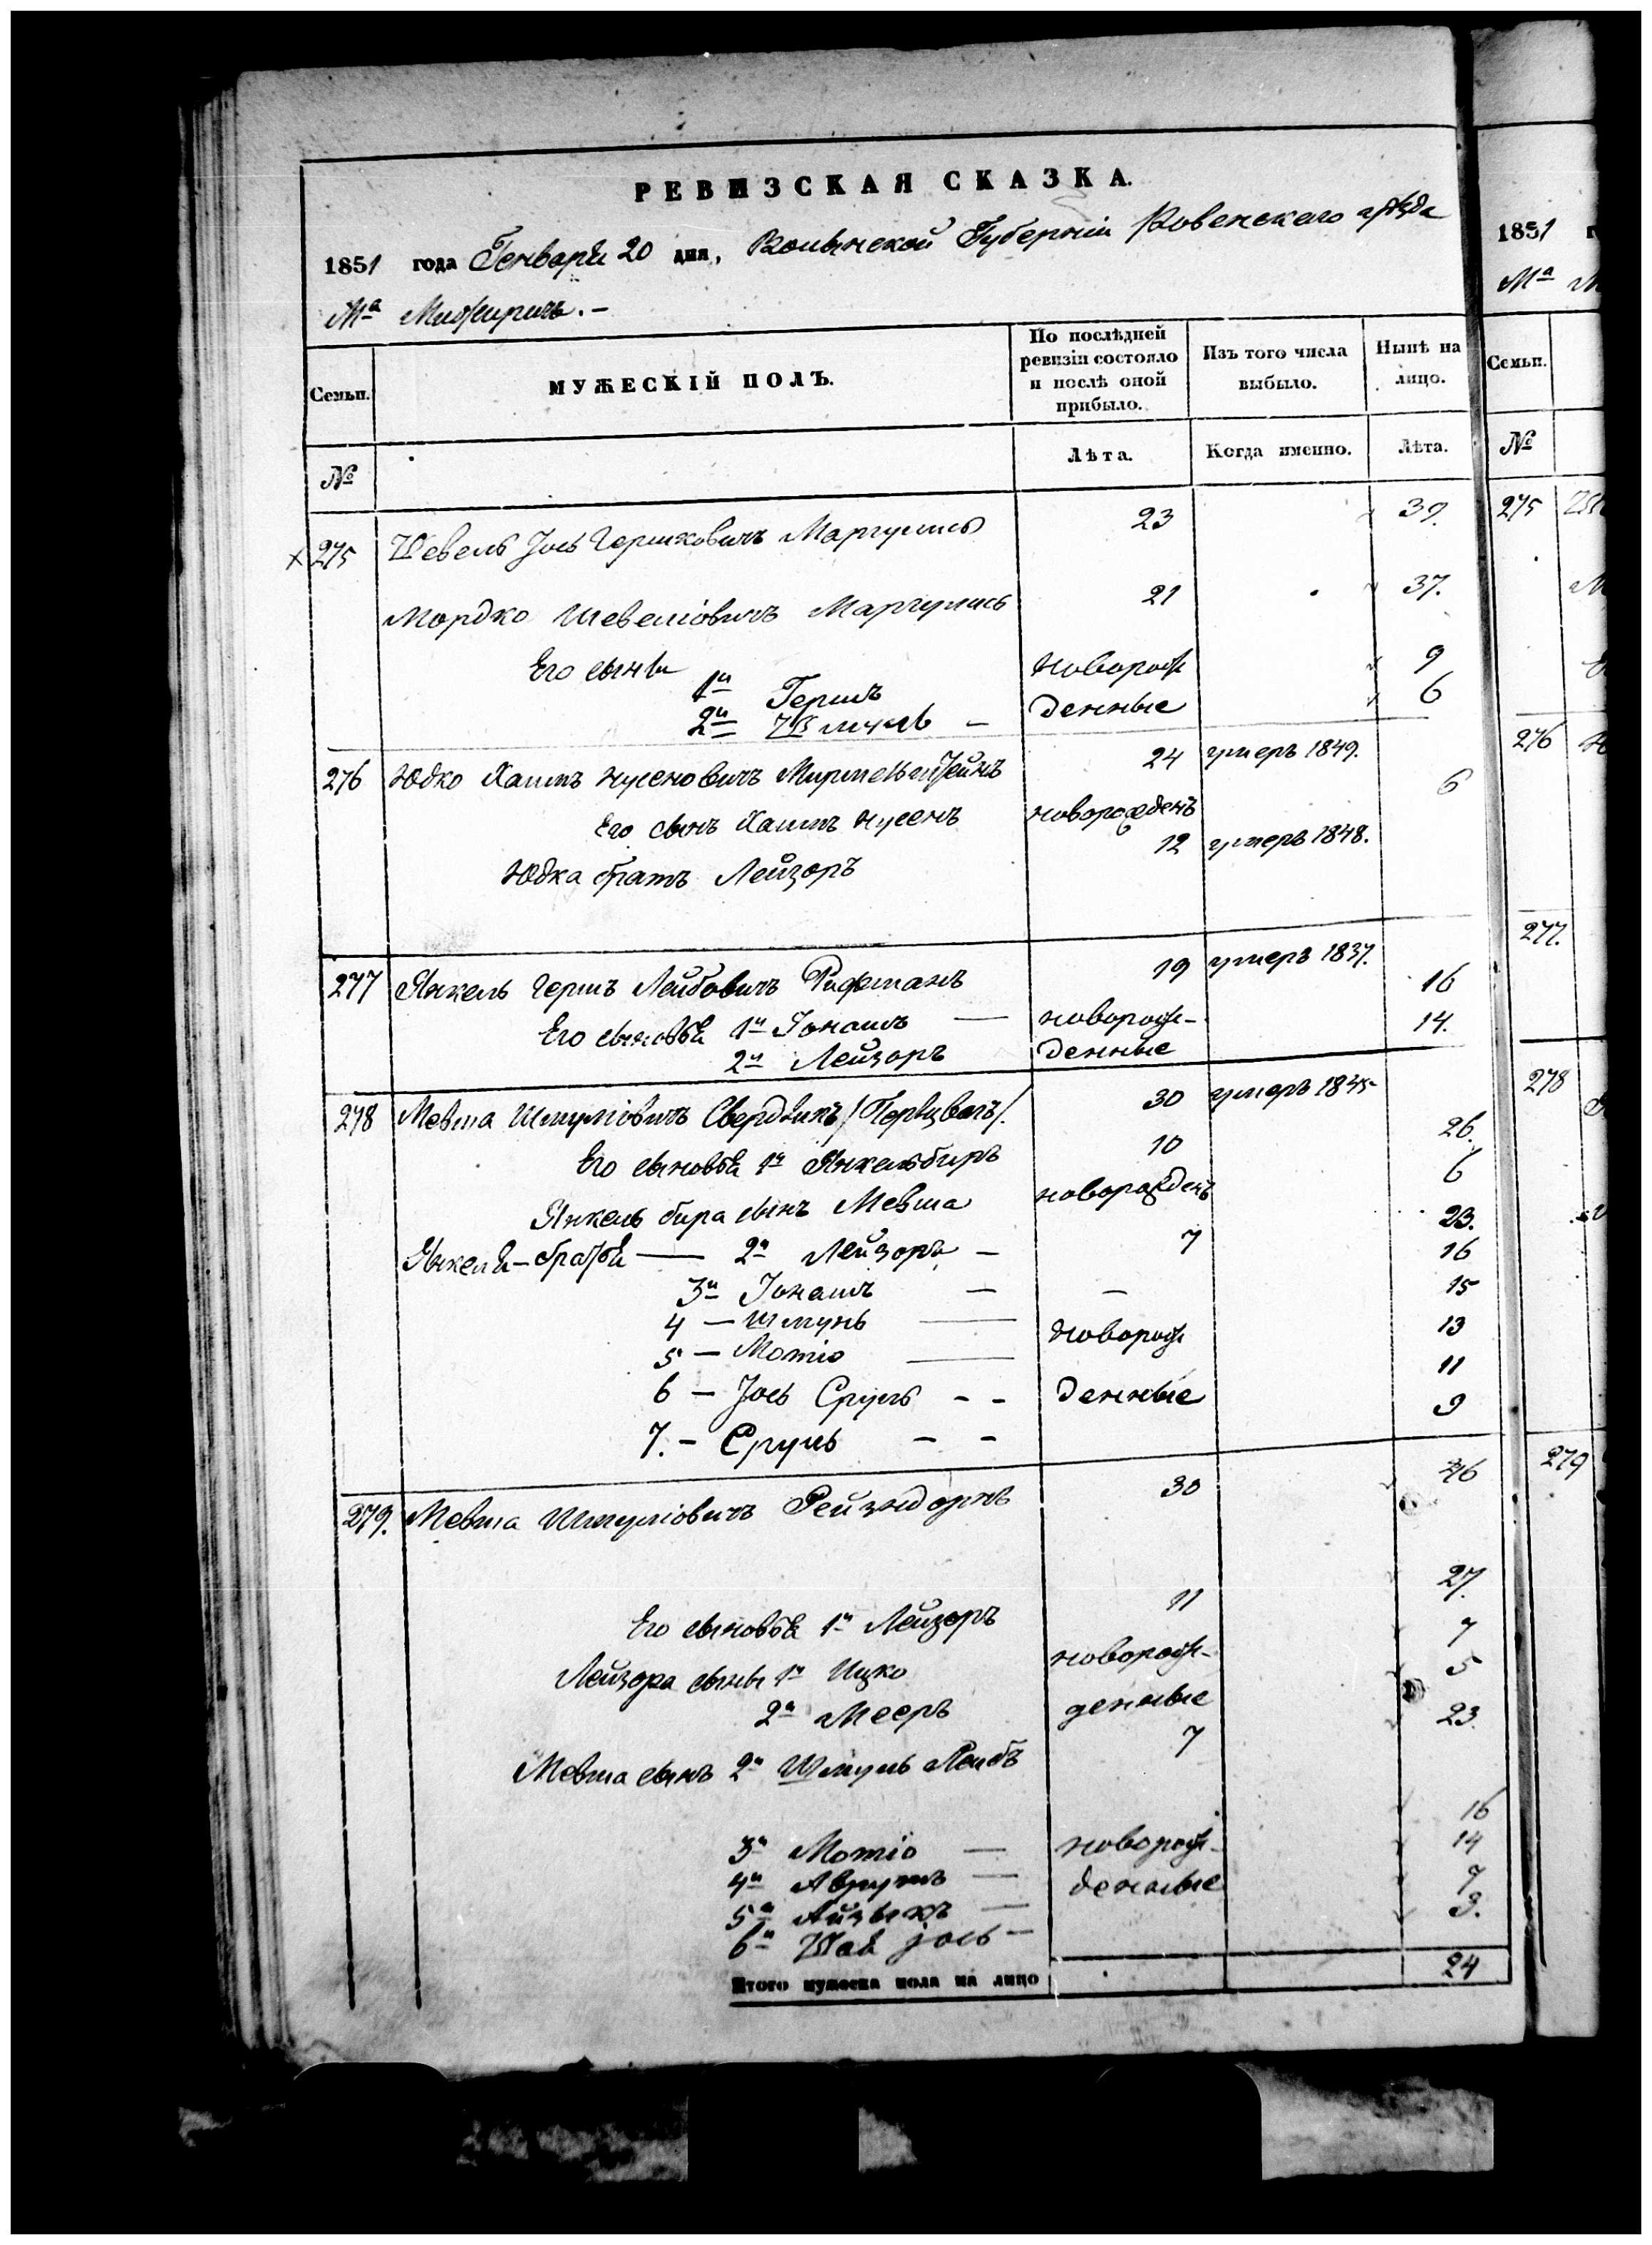 РЕВИЗСКАЯ СКАЗКА.
1851 года Генваря 20 дня, Волынской Губерніи Ровенскаго уѣзда
Мª Межиричъ. –
Семьи. МУЖЕСКІЙ ПОЛЪ. По послѣдней ревизіи состояло и послѣ оной прибыло. Изъ того числа выбыло. Нынѣ на лицо.
№ Лѣта. Когда именно. Лѣта.
275 Шевель Iось Гершковичъ Маргулисъ 23 39.
Мордко Шевеліовичъ Маргулисъ 21 37.
Его сынъя 1й Гершъ новорож 9
2й Шмуль – денные 6
276 Юдко Хаимъ Нусеновичъ 24 умеръ 1849.
Его сынъ Хаимъ Нусенъ новорожденъ 6
Юдка братъ Лейзоръ 12 умеръ 1848.
277 Янкель Гершъ Лейбовичъ Рифманъ 19 умеръ 1837.
Его сыновья 1й Iонашъ — новорож- 16
2й Лейзоръ денные 14.
278 Мевша Шмуліовичъ 30 умеръ 1845
Его сыновья 1й Янкель биръ 10 26.
Янкель бира сынъ Мевша новорожденъ 6
Янкеля – братья — 2й Лейзоръ – 7 23.
3й Iонашъ – – 16
4 – Шмунь — 15
5 – Мотіо — новорож 13
6 – Iось Сруль – – денные 11
7. – Сруль – – 9
279. Мевша Шмуліовичъ Рейзндорнъ 30 46
Его сыновья 1й Лейзоръ 11 27.
Лейзора сыны 1й Ицко новорож- 7
2й Мееръ денные 5
Мевша сынъ 2й Шмуль Лейбъ 7 23.
3й Мотіо — новорож- 16
4й Аврумъ — денные 14
5й Айзыкъ — 7
6й Iось – 3.
Итого мужеска пола на лицо 24
1851
Мª
Семьи.
№
275
276
277.
278
279